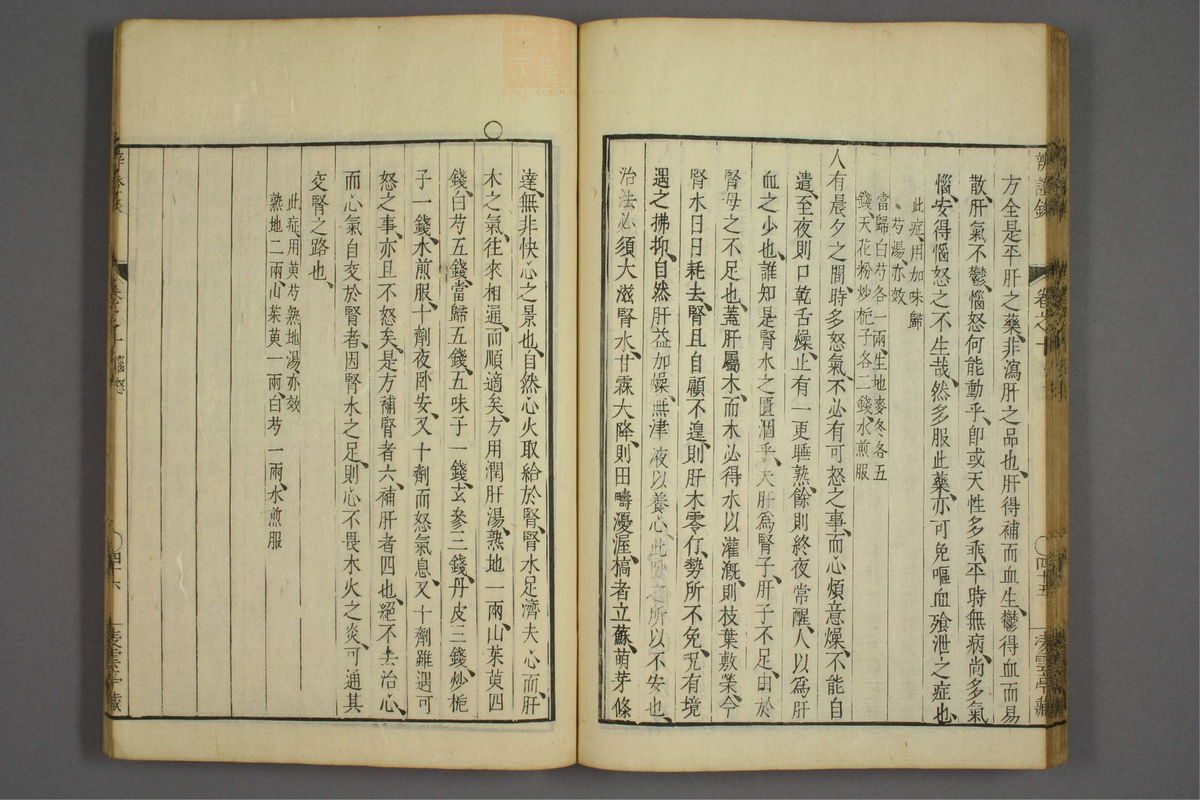 辨證錄 卷之十 四十五
方全是平肝之藥、非瀉肝之品也、肝得補而血生、鬱得血而易
散、肝氣不鬱、惱怒何能動乎、卽或天性多乖、平時無病、尚多氣
惱、安得惱怒之不生哉、然多服此藥、亦可免嘔血飱泄之症也、
此症、用加味歸
芍湯、亦效、
當歸白芍各一兩、生地麥冬各五
錢、天花粉炒梔子各二錢、水煎服
人有晨夕之間、時多怒氣、不必有可怒之事、而心煩意燥、不能自
遣、至夜則口乾舌燥、止有一更睡熟、餘則終夜常醒、人以爲肝
血之少也、誰知是腎水之匱涸乎、夫肝爲腎子、肝子不足、由於
腎母之不足也、蓋肝屬木、而木必得水以灌漑、則枝葉敷榮、今
腎水日日耗去、腎且自顧不遑、則肝木零仃、勢所不免、況有境
遇之拂抑、自然肝益加燥、無津液以養心、此卧之所以不安也、
治法必須大滋腎水、甘霖大降、則田疇優渥、槁者立蘇、萌芽條
達、無非快心之景也、自然心火取給於腎、腎水足濟夫心、而肝
木之氣、往來相通、而順適矣、方用潤肝湯、熟地一兩、山茱萸四
錢、白芍五錢、當歸五錢、五味子一錢、玄參三錢、丹皮三錢、炒梔
子一錢、水煎服、十劑夜卧安、又十劑而怒氣息、又十劑雖遇可
怒之事、亦且不怒矣、是方補腎者六、補肝者四也、絕不去治心、
而心氣自交於腎者、因腎水之足、則心不畏木火之炎、可通其
交腎之路也、
此症、用萸芍熟地湯、亦效
熟地二兩、山茱萸一兩、白芍一兩、水煎服
惱怒 四十六